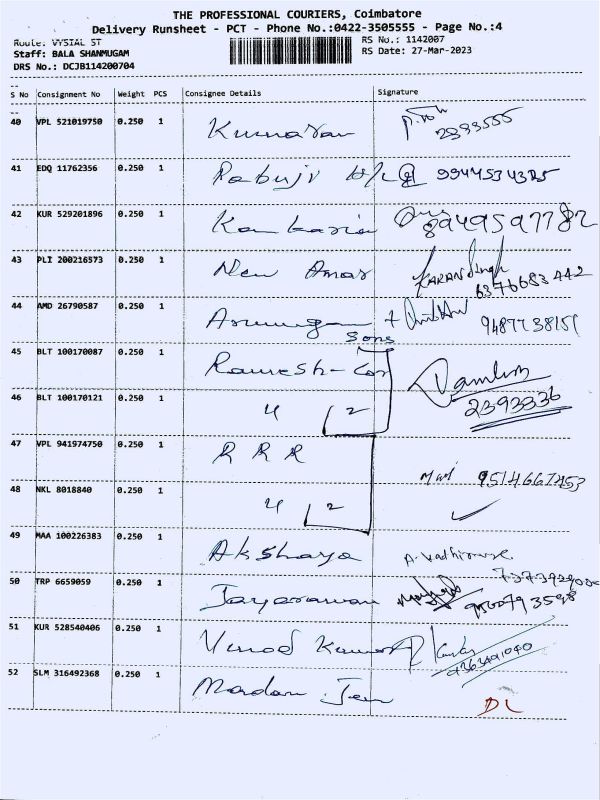 THE PROFESSIONAL COURIERS, Coimbatore
Delivery Runsheet - PCT - Phone No.:0422-3505555 - Page No.:4
Route: VYSIAL ST
RS No.: 1142007
Staff: BALA SHANMUGAM
RS Date: 27-Mar-2023
DRS No.: DCJB114200704
S No Consignment No Weight PCS Consignee Details Signature
40 VPL 521019750 0.250 1 Kumaran 2393555
41 EDQ 11762356 0.250 1 Pabuji H/L
42 KUR 529201896 0.250 1 8949597782
43 PLI 200216573 0.250 1 New Amar KARAN Singh
6376683442
44 AMD 26790587 0.250 1 Arumugam + 9487738151
Sons
45 BLT 100170087 0.250 1 Ramesh - Co
46 BLT 100170121 0.250 1 4 2 2393336
47 VPL 941974750 0.250 1 R R R
48 NKL 8018840 0.250 1 4 2
49 MAA 100226383 0.250 1 Akshaya
50 TRP 6659059 0.250 1 Jayaraman
51 KUR 528540406 0.250 1 Vinod Kumar
52 SLM 316492368 0.250 1 Madan Jain DL